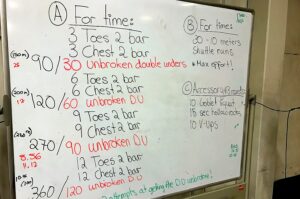 A For time:
3 Toes 2 bar
3 Chest 2 bar
90/30 unbroken double unders
6 Toes 2 bar
6 Chest 2 bar
120/60 unbroken DU
9 Toes 2 bar
9 Chest 2 bar
270/90 unbroken DU
12 Toes 2 bar
12 Chest 2 bar
360/120 unbroken DU
attempts at getting the DU unbroken!
B For time:
30 - 10 meters
Shuttle runs
Max effort!
C Accessory
10 Goblet Squat
15 sec
10 V-ups